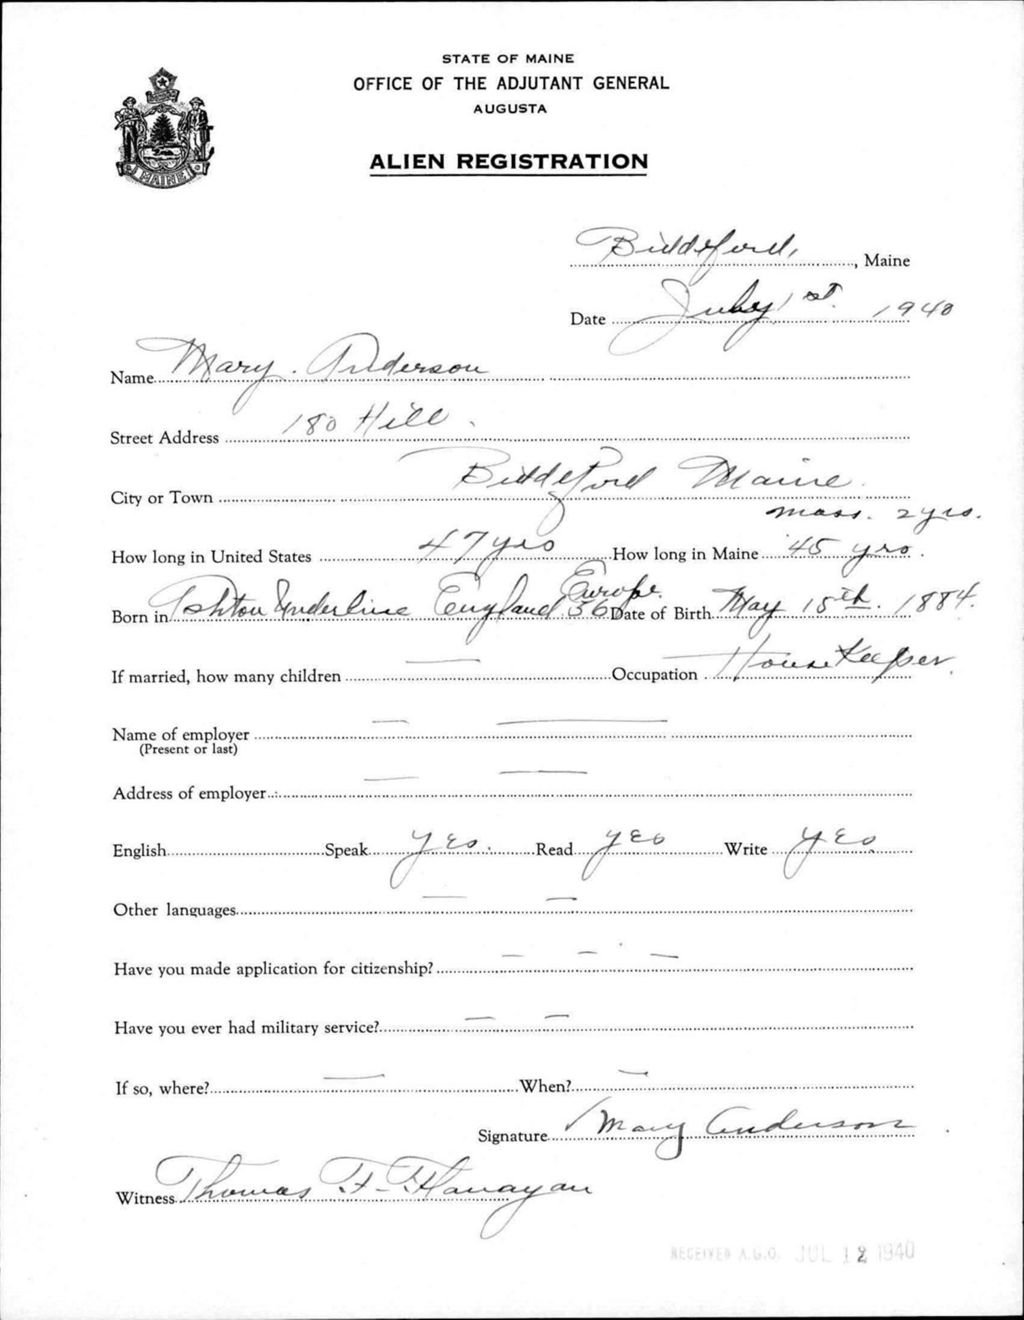 STATE OF MAINE
OFFICE OF THE ADJUTANT GENERAL
AUGUSTA
MAINE
ALIEN REGISTRATION
Biddeford, , Maine
Date July 1st. 1940
Name Mary. Anderson
Street Address 180 Hill.
City or Town Biddeford Maine.
Mass. 2 yrs.
How long in United States 47 yrs How long in Maine 45 yrs.
Europe.
Born in Ashton Underline England 56 Date of Birth May 15th. 1884.
If married, how many children — Occupation HouseKeeper.
Name of employer — —
(Present or last)
Address of employer — —
English Speak yes. Read yes Write yes
Other languages — —
Have you made application for citizenship? — — —
Have you ever had military service? — —
If so, where? — When? —
Signature Mary Anderson
Witness Thomas F. Flanagan
RECEIVED A.G.O. JUL 12 1940